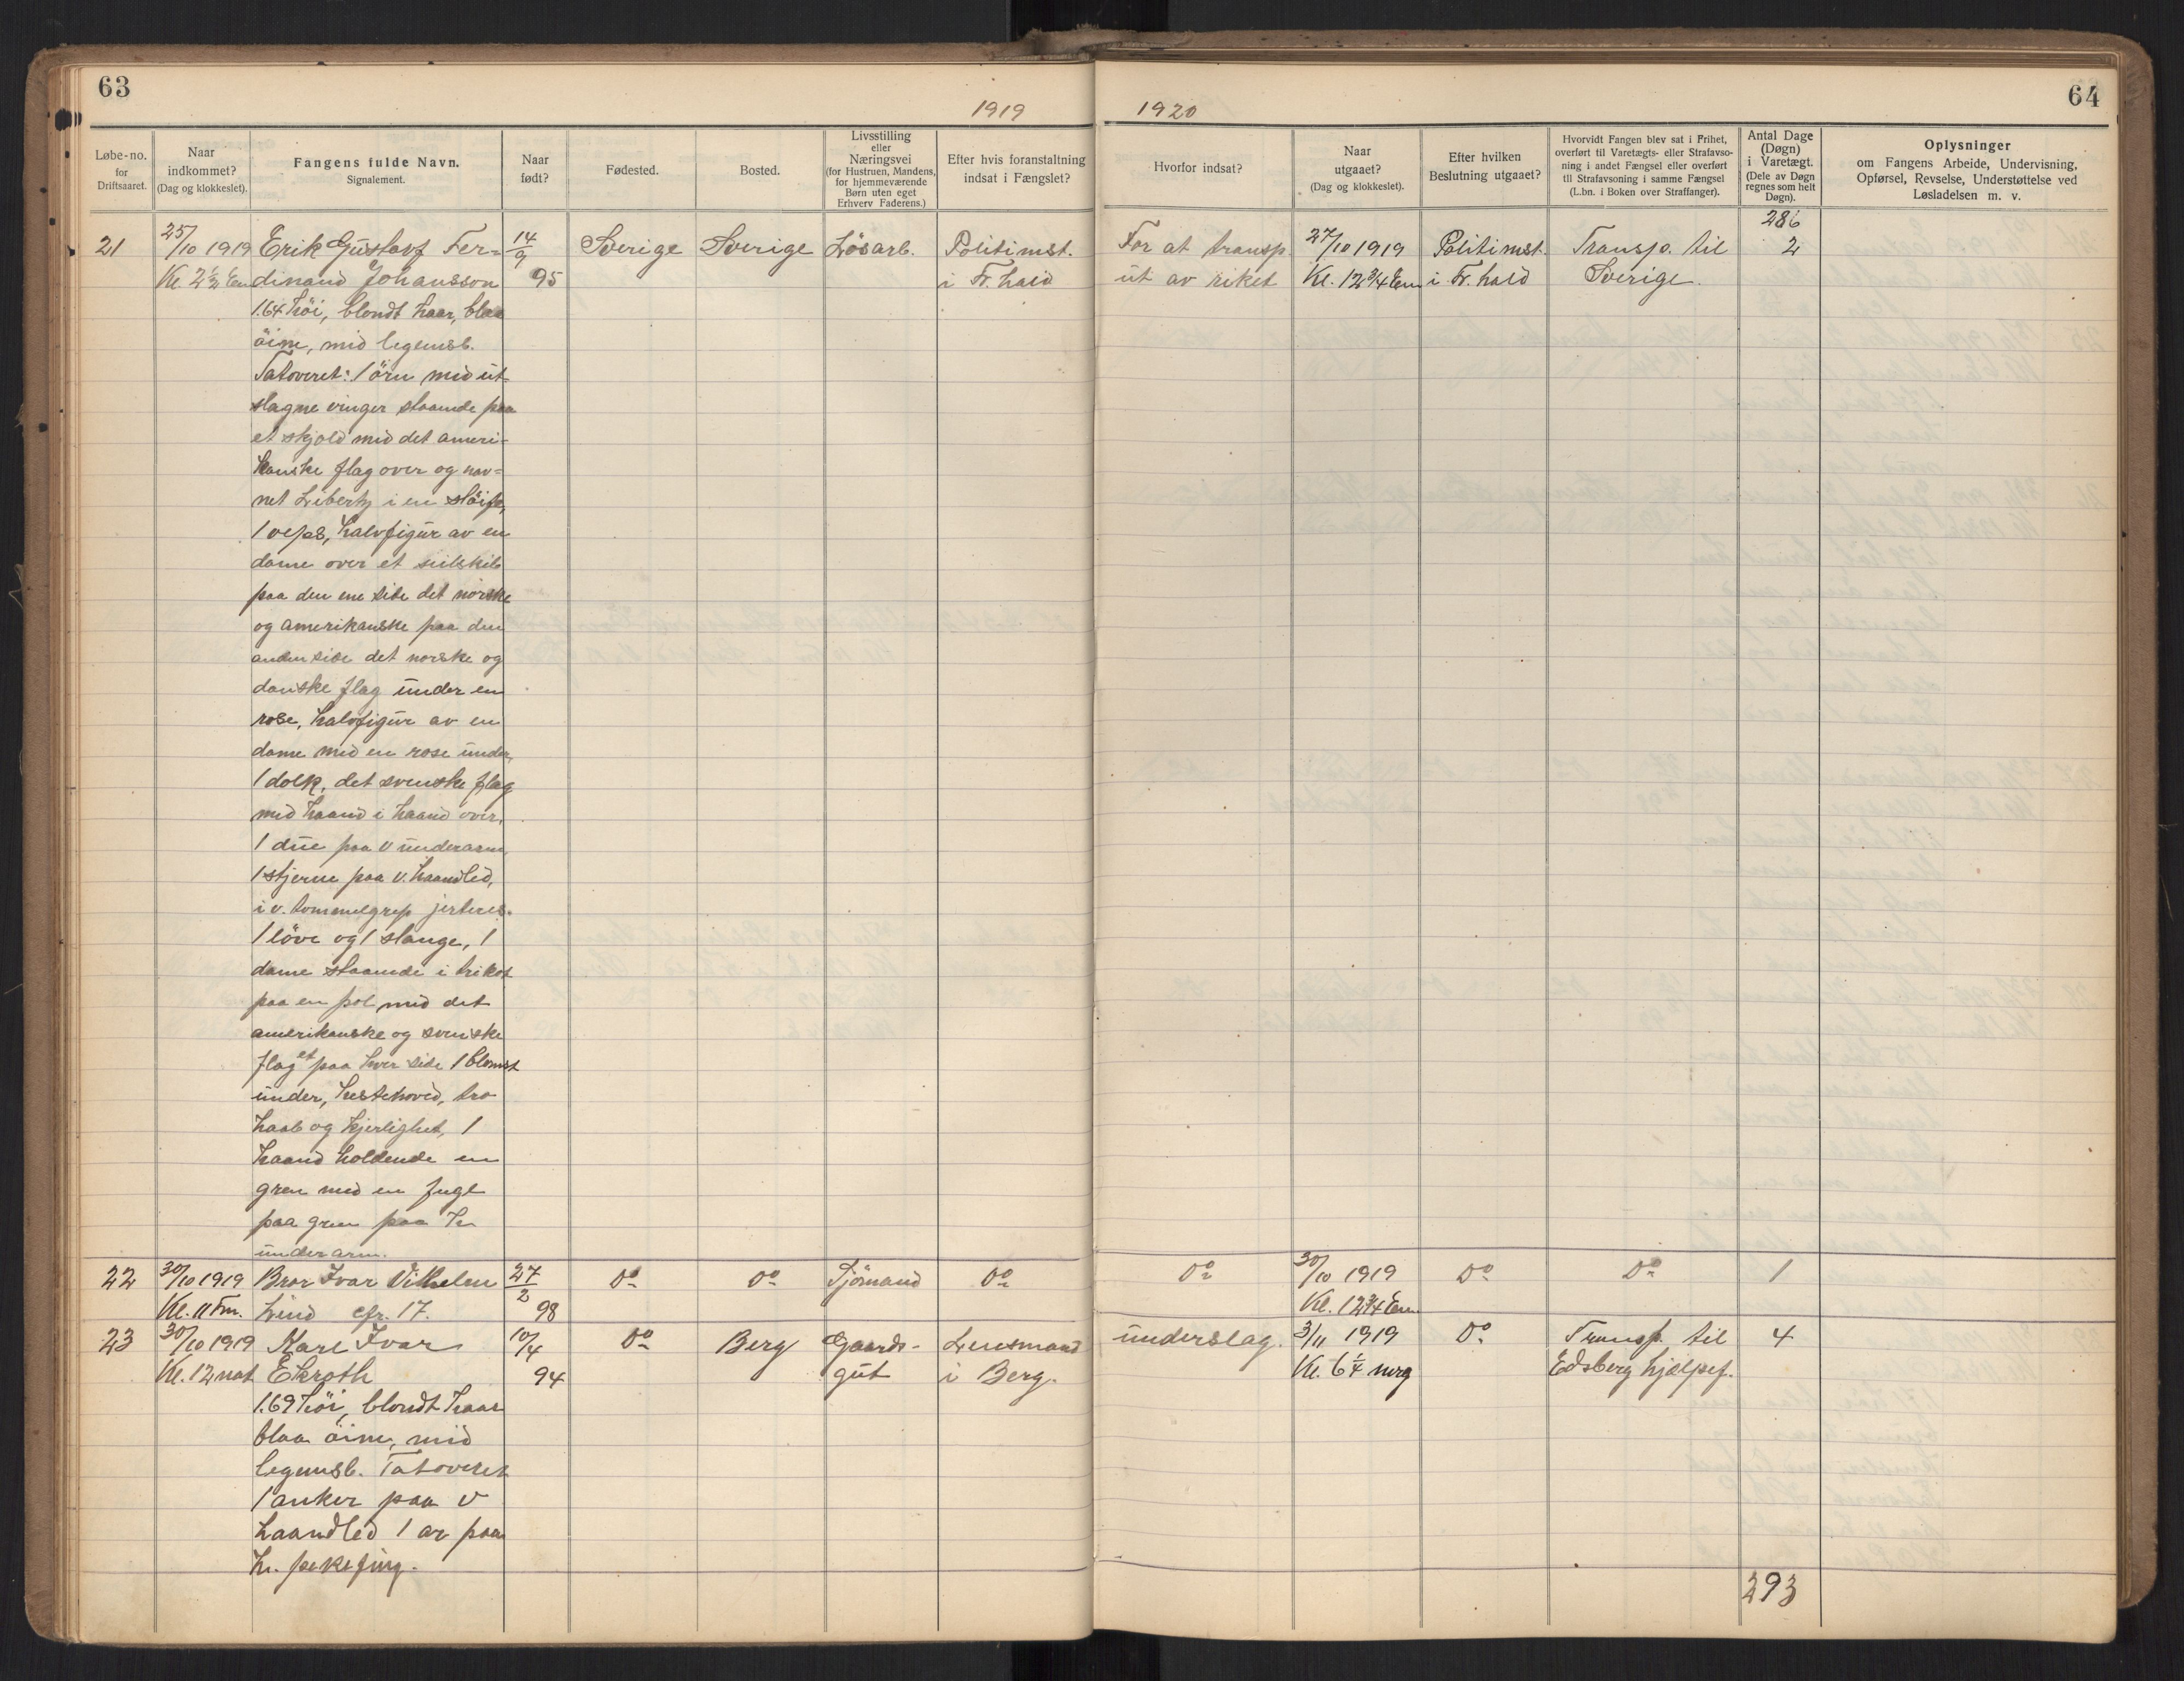 63
1919
1920
64
Løbe-no.
for
Driftsaaret.
Naar
indkommet?
(Dag og klokkeslet).
Fangens fulde Navn.
Signalement.
Naar
født?
Fødested.
Bosted.
Livsstilling
eller
Næringsvei
(for Hustruen, Mandens,
for hjemmeværende
Børn uten eget
Erhverv Faderens.)
Efter hvis foranstaltning
indsat i Fængslet?
Hvorfor indsat?
Naar
utgaaet?
(Dag og klokkeslet).
Efter hvilken
Beslutning utgaaet?
Hvorvidt Fangen blev sat i Frihet,
overført til Varetægts- eller Strafavso-
ning i andet Fængsel eller overført
til Strafavsoning i samme Fængsel
(L.bn. i Boken over Straffanger).
Antal Dage
(Døgn)
i Varetægt.
(Dele av Døgn
regnes som helt
Døgn).
Oplysninger
om Fangens Arbeide, Undervisning,
Opførsel, Revselse, Understøttelse ved
Løsladelsen m. v.
286
21 25/10 1919 Erik Gustavf Fer= 14/9 Sverige Sverige Lösarb. Politimst. For at transp. 27/10 1919 Politimst. Transp. til 2
Kl. 2½ Em dinand Johansson 95 i Fr.hald ut av riket Kl. 12¾ Em i Fr.hald Sverige.
1.64 höi, blondt haar, blaa
öine, mid legemsb.
Tatoveret: 1 örn med ut
slagne vinger staaende paa
et skjold med det ameri-
kanske flag over og nav=
net Liberty i en slöife,
1 veps, halvfigur av en
dame over et seilskib
paa den ene side det norske
og amerikanske paa den
anden side det norske og
danske flag under en
rose, halvfigur av en
dame med en rose under,
1 dolk, det svenske flag
med haand i haand over,
1 due paa v underarm
1 stjerne paa v. haandled,
i v. tommelgrep
1 löve og 1 slange, 1
dame staaende i trikot
paa en pol med det
amerikanske og svenske
flag et paa hver side 1 blomst
under, hestehoved, tro
haab og kjerlighet, 1
haand holdende en
gren med en fugl
paa gren paa h
underarm.
22 30/10 1919 Bror Ivar Vilhelm 27/2 Do Do Sjömand Do Do 30/10 1919 Do Do 1
Kl. 11 Fm. Lind cfr. 17. 98 Kl. 12¾ Em
23 30/10 1919 Karl Ivar 10/4 Do Berg Gaards- Lensmand underslag. 3/11 1919 Do Transp. til 4
Kl. 12 nat Ekroth 94 gut i Berg. Kl. 6¼ mrg Edsberg hjælpef.
1.69 höi, blondt haar
blaa öine, mid
legemsb. Tatoveret
1 anker paa v
haandled 1 ar paa
h. pekefing.
293